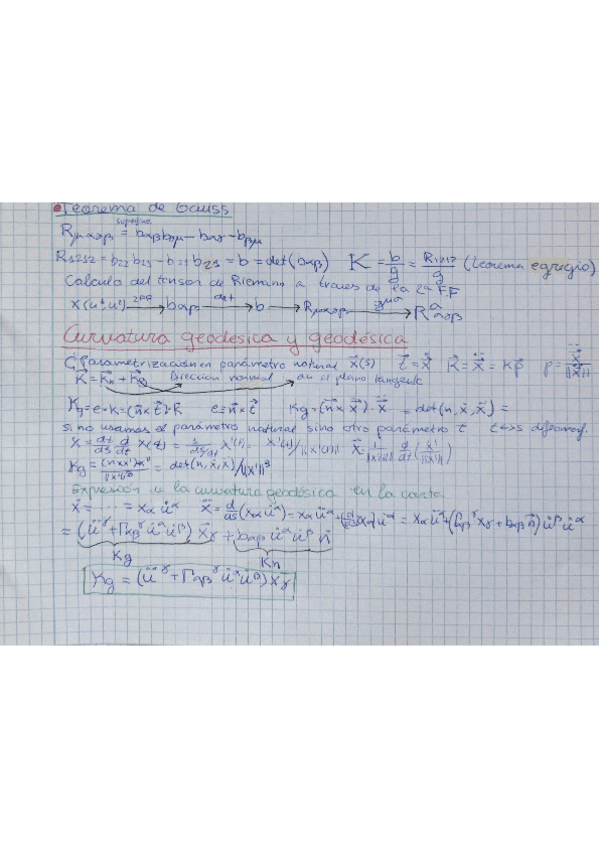 Teorema de Gauss
superficie
Rμαρβ = bαβbρμ - bαρ - bβμ
R1212 = b22 b11 - b21 b21 = b = det(bαβ) K = b/g = R1212/g (teorema egregio)
Calculo del tensor de Riemann a traves de la 2ª F.F
X(u¹,u²) 2ªFF → bαβ det → b → Rμαρβ → R
Curvatura geodesica y geodésica
C: parametrización en parámetro natural x(s) t = ẋ K = ẍ = Kp p = ẍ/||ẍ||
K = Kn + Kg Dirección normal en el plano tangente
Kg = e·K = (n×t)·K e = n×t Kg = (n×ẋ)·ẍ = det(n, ẋ, ẍ) =
si no usamos el parámetro natural sino otro parámetro t t↔s difeomorf.
ẋ = dt/ds d/dt x(t) = x'(t)/||x'(t)|| ẍ = 1/||x'(t)|| d/dt (x'/||x'||)
Kg = (n×x')·x''/||x'||³ = det(n, x', x'')/||x'||³
Expresión de la curvatura geodésica en la carta
ẋ = ..... = xα u̇α ẍ = d/ds (xα u̇α) = xα üα + (d/ds xα) u̇α = xα üα + (Γαβγ xγ + bαβ n) u̇β u̇α
= (üγ + Γαβγ u̇α u̇β) xγ + bαβ u̇α u̇β n
Kg Kn
Kg = (üγ + Γαβγ u̇α u̇β) xγ